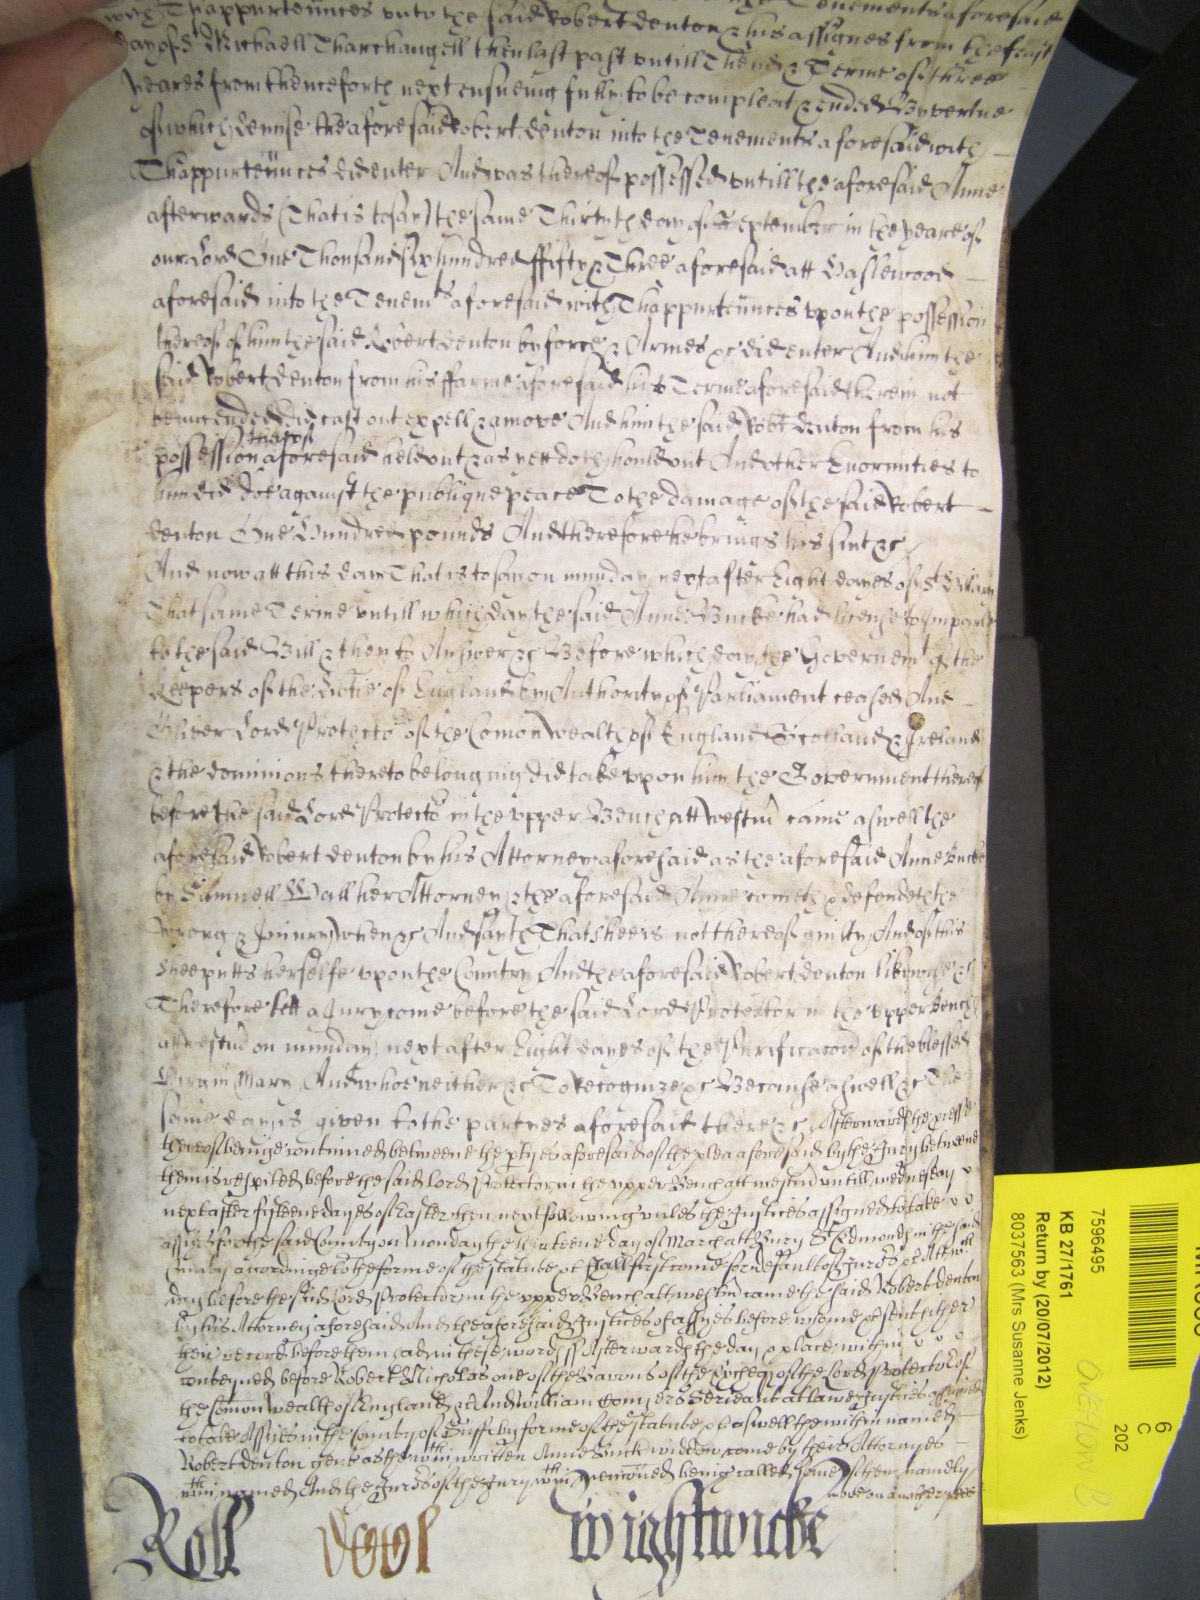 with Thappurtennces unto the said Robert denton & his assignes from the feast
day of St Michaell Tharchangell then last past untill Thend & Terme of three
yeares from thenceforth next ensueing fully to be compleat & ended By vertue
of which demise the aforesaid Robert denton into the Tenements aforesaid with
Thappurtennces did enter And was thereof possessed untill the aforesaid Anne
afterwards (That is to say) the same Thirtyth day of September in the yeare of
our Lord One Thousand six hundred ffifty & Three aforesaid att Haslewood
aforesaid into the Tenemts aforesaid with Thappurtennces upon the possession
thereof of him the said Robert denton by force & Armes &c did enter And him the
said Robert denton from his ffarme aforesaid his Terme aforesaid therein not
being ended did cast out expell & amove And him the said Robt denton from his
possession thereof aforesaid held out & as yett doth hould out And other Enormities to
him did doe against the publique peace To the damage of the said Robert
denton One Hundred pounds And therefore he brings his suit &c
And now att this day That is to say on munday next after Eight dayes of St Hillary
That same Terme untill which day the said Anne Bucke had license to Imparle
to the said Bill & then to Answer &c Before which day the Governemt of the
Keepers of the Libtie of England by Authority of Parliament ceased And
Oliver Lord Protector of the Comon wealth of England Scotland & Ireland
& the dominions thereto belonging did take upon him the Government thereof
before the said Lord Protector in the upper Bench att Westm came aswell the
aforesaid Robert denton by his Attorney aforesaid as the aforesaid Anne Bucke
by Samuell Wall her Attorney & the aforesaid Anne cometh & defendeth the
wrong & Injury when &c And sayth That shee is not thereof guilty And of this
shee putts herselfe upon the Country And the aforesaid Robert denton likewise &c
Therefore lett a Jury come before the said Lord Protector in the upper Bench
att Westm on munday next after Eight dayes of the Purificacon of the blessed
Virgin Mary And who neither &c To Recognize &c Because aswell &c The
same day is given to the partyes aforesaid there &c Afterwards the processe
thereof beinge continued betweene the ptyes aforesaid of the plea aforesaid by the Jury betweene
them is respited before the said Lord Protector in the upper Bench att westm untill wednesday
next after fifteene dayes of Easter then next following unles the Justices assigned to take
assizes for the said County on monday the day of March att Bury St Edmonds in the said
County accordinge to the forme of the statute &c shall first come for default of Jurors &c Att wch
day before the said Lord Protector in the upper Bench att westm came the said Robert denton
by his Attorney aforesaid And the aforesaid Justices of assizes before whome &c sent hither
their record before them had in these words ss Afterwards the day & place within
conteyned before Robert Nicholas one of the Barons of the Excheqr of the Lord Protector of
the Comon wealth of England &c And William Serjeant at law Justices assigned
to take Assizes in the County of Suff by forme of the statute &c aswell the within named
Robert denton gent as the wthin written Anne Buck widdow come by their Attornyes
wthin named And the Jurors of the Jury wthin menconed being called some of them namely
more on another
Roll Wightwicke
7596495
KB 27/1761
Return by (20/07/2012)
8037563 (Mrs Susanne Jenks)
6
C
202